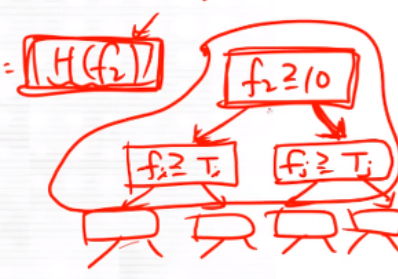 = H(f₂)
f₂ ≥ 10
fᵢ ≥ Tᵢ fⱼ ≥ Tⱼ